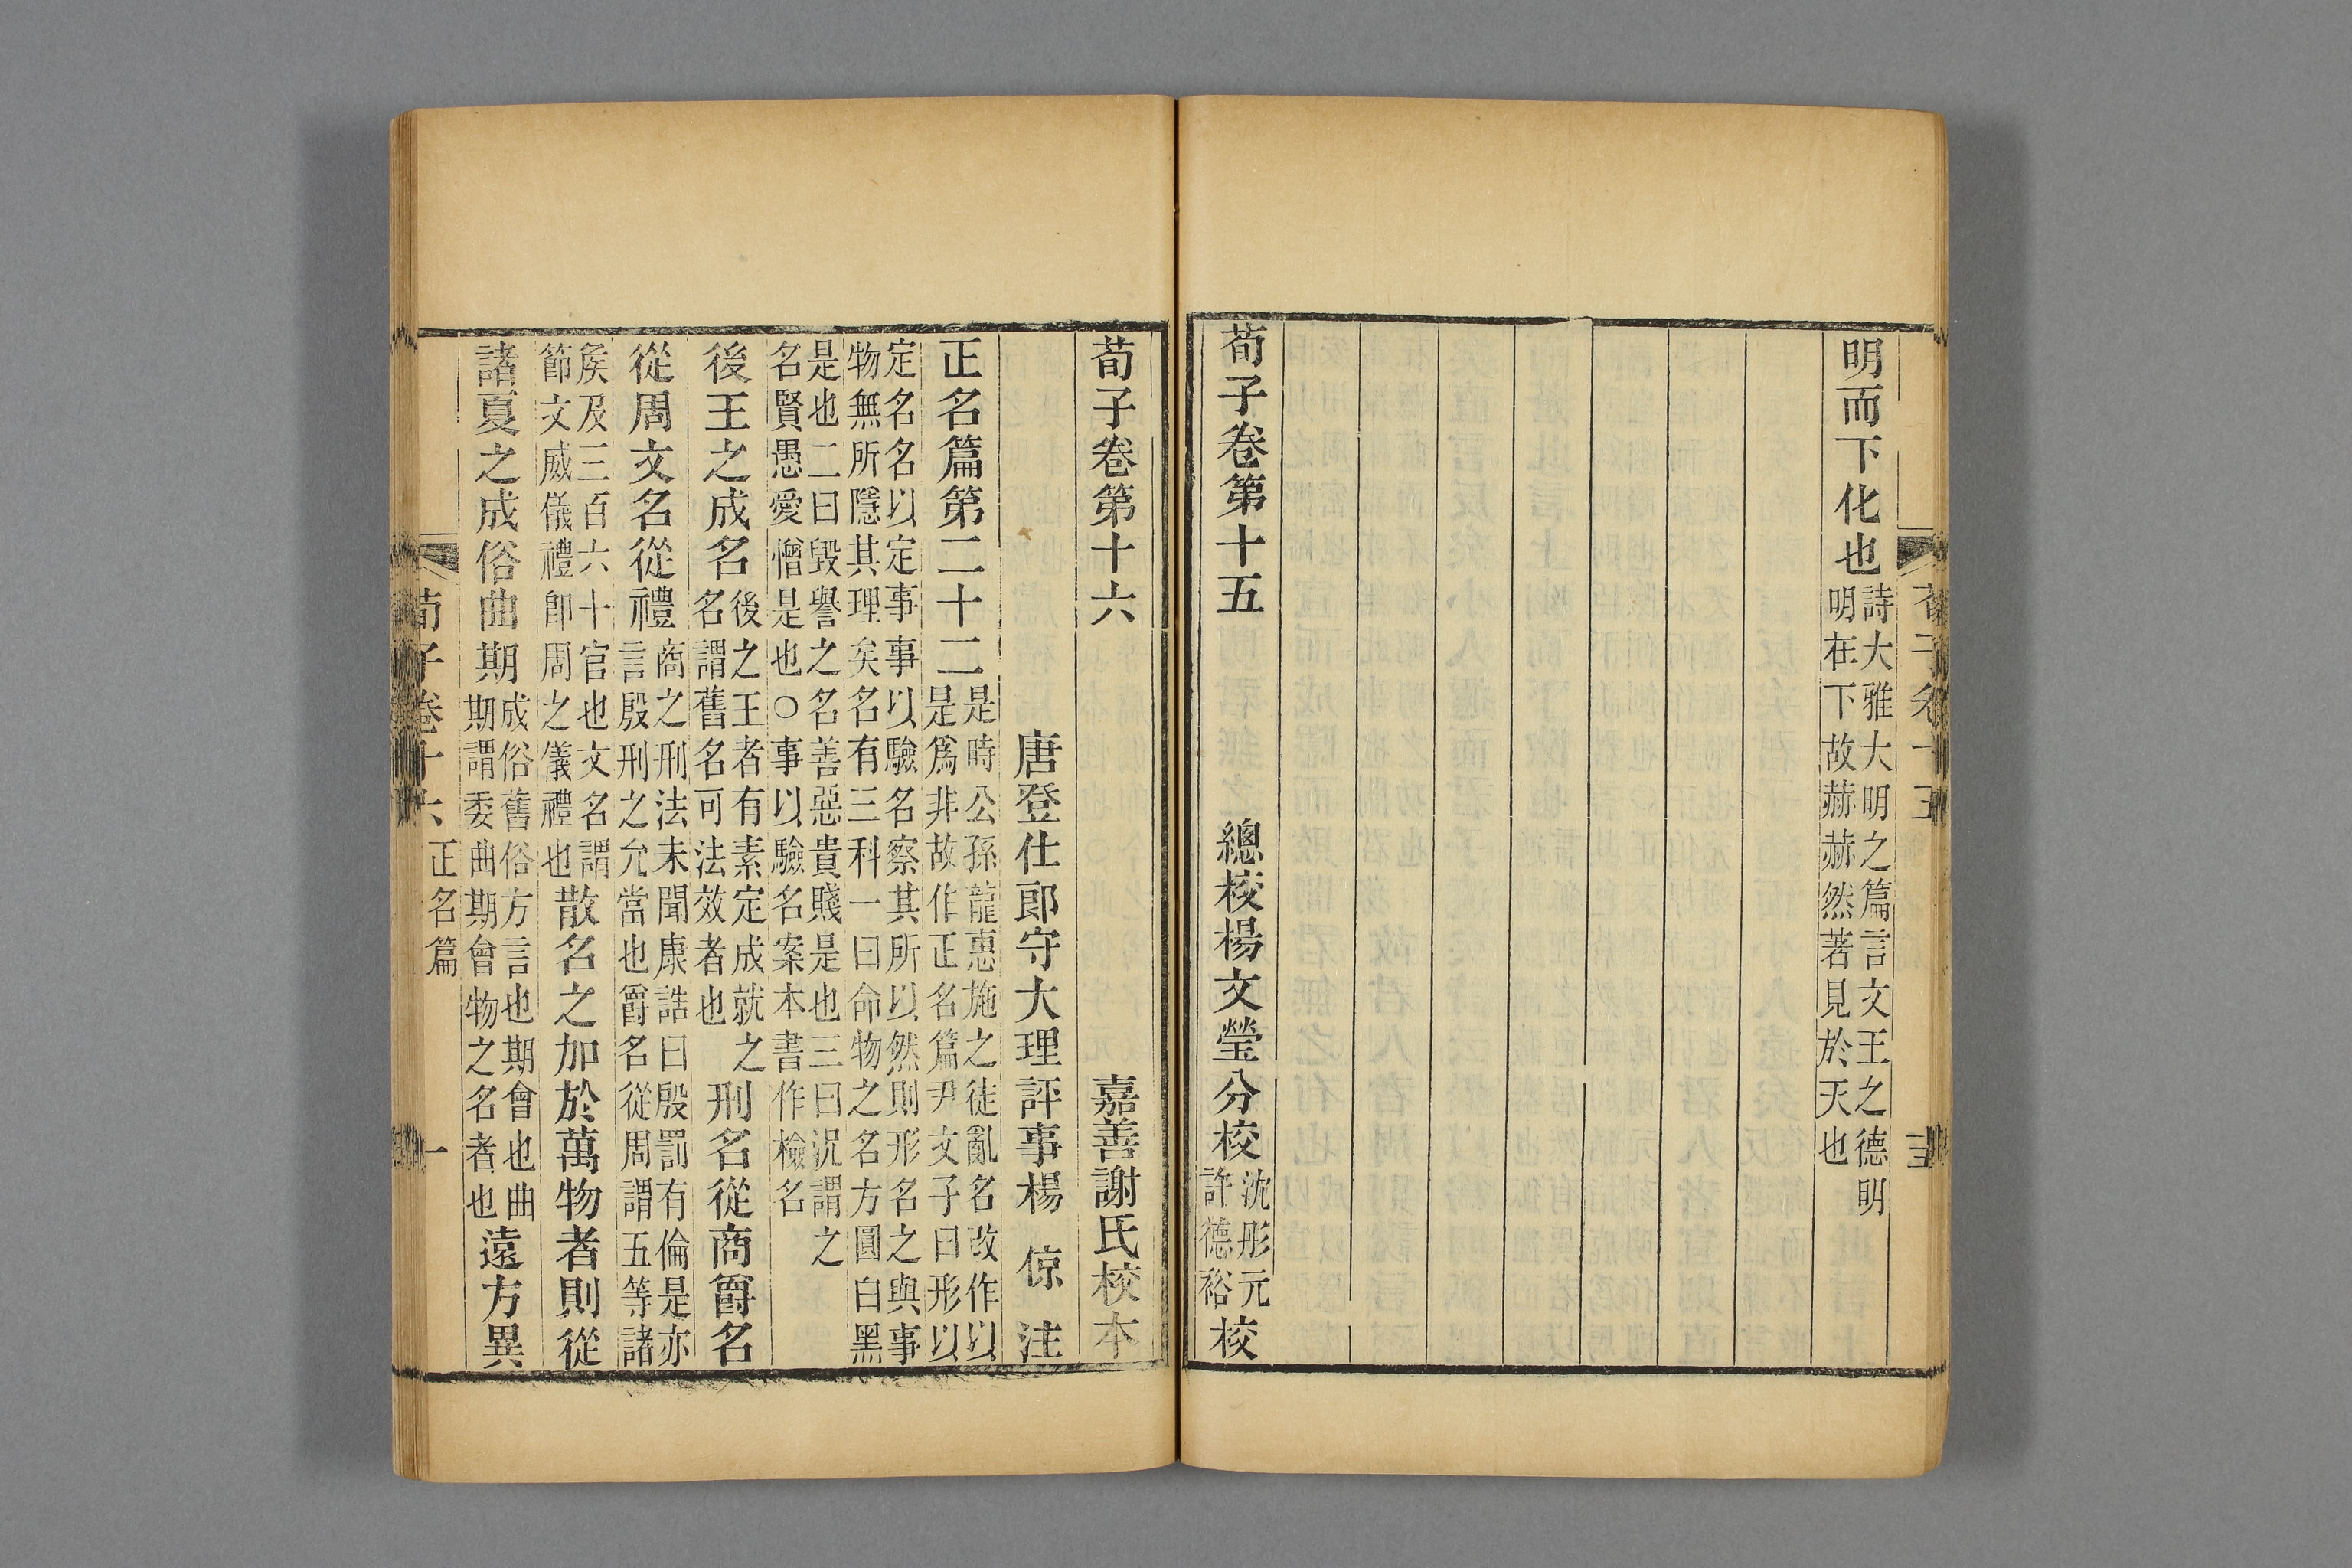 明而下化也詩大雅大明之篇言文王之德明
明在下故赫赫然著見於天也
荀子卷十五
荀子卷第十五 總校楊文瑩分校沈彤元許德裕校
荀子卷第十六 嘉善謝氏校本
唐登仕郎守大理評事楊 倞 注
正名篇第二十二是時公孫龍惠施之徒亂名改作以
是爲非故作正名篇尹文子曰形以
定名名以定事事以驗名察其所以然則形名之與事
物無所隱其理矣名有三科一曰命物之名方圓白黑
是也二曰毀譽之名善惡貴賤是也三曰況謂之
名賢愚愛憎是也○事以驗名案本書作檢名
後王之成名後之王者有素定成就之
名謂舊名可法效者也刑名從商爵名
從周文名從禮商之刑法未聞康誥曰殷罰有倫是亦
言殷刑之允當也爵名從周謂五等諸
矦及三百六十官也文名謂
節文威儀禮卽周之儀禮也散名之加於萬物者則從
諸夏之成俗曲期成俗舊俗方言也期會也曲
期謂委曲期會物之名者也遠方異
荀子卷十六 正名篇 一